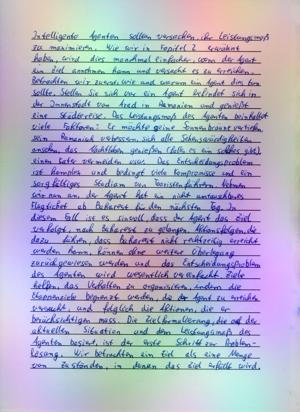 Intelligente Agenten sollen versuchen, ihr Leistungsmaß
zu maximieren. Wie wir in Kapitel 2 erwähnt
haben, wird dies manchmal einfacher, wenn der Agent
ein Ziel annehmen kann und versucht es zu erreichen.
Betrachten wir zuerst, wie und warum ein Agent dies tun
sollte. Stellen Sie sich vor, ein Agent befindet sich in
der Innenstadt von Arad in Rumänien und genießt
eine Städtereise. Das Leistungsmaß des Agenten beinhaltet
viele Faktoren: Er möchte seine Sonnenbräune vertiefen
sein Rumänisch verbessern, sich alle Sehenswürdigkeiten
ansehen, das Nachtleben genießen (falls es ein solches gibt)
einen Kater vermeiden usw. Das Entscheidungsproblem
ist komplex und bedingt viele Kompromisse und ein
sorgfältiges Studium von Touristenführern. Nehmen
wir nun an, der Agent hat ein nicht umtauschbares
Flugticket ab Bukarest für den nächsten Tag. In
diesem Fall ist es sinnvoll, dass der Agent das Ziel
verfolgt, nach Bukarest zu gelangen. Aktionsfolgen, die
dazu führen, dass Bukarest nicht rechtzeitig erreicht
werden kann, können ohne weitere Überlegung
zurückgewiesen werden und das Entscheidungsproblem
des Agenten wird wesentlich vereinfacht. Ziele
helfen, das Verhalten zu organisieren, indem die
begrenzt werden, die der Agent zu erreichen
versucht, und folglich die Aktionen, die er
berücksichtigen muss. Die Zielformulierung, die auf der
aktuellen Situation und dem Leistungsmaß des
Agenten basiert, ist der erste Schritt zur Problem-
lösung. Wir betrachten ein Ziel als eine Menge
von Zuständen, in denen das Ziel erfüllt wird.